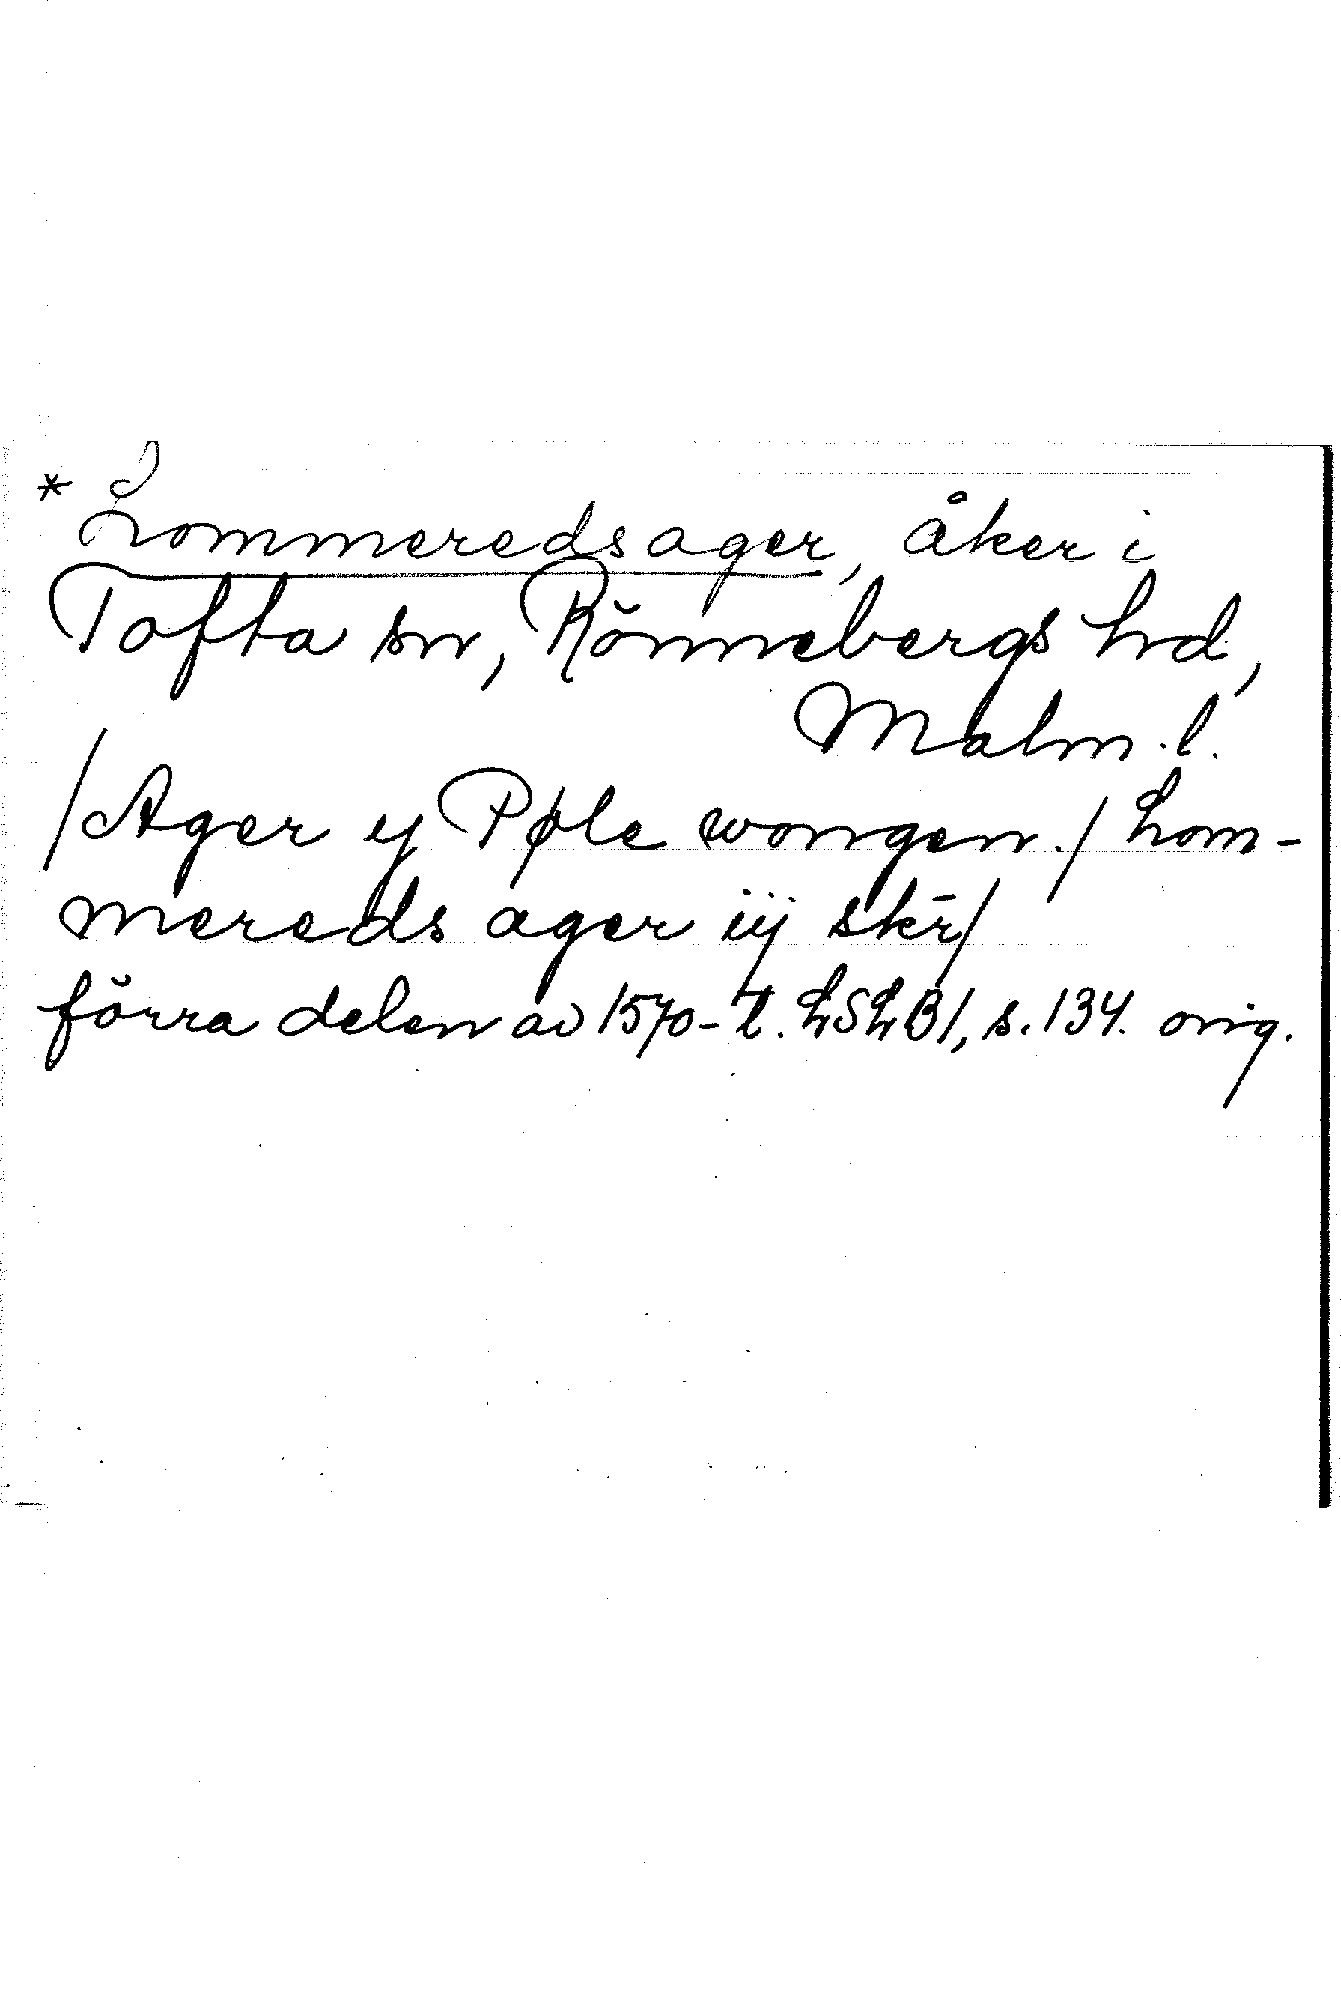 * Lommeredsager, åker i
Tofta sn, Rönnebergs hd,
Malm. l.
/Ager ÿ Pøle wongen./ Lom-
mereds ager iij skr/
förra delen av 1570-t. LSLB1, s. 134. orig.